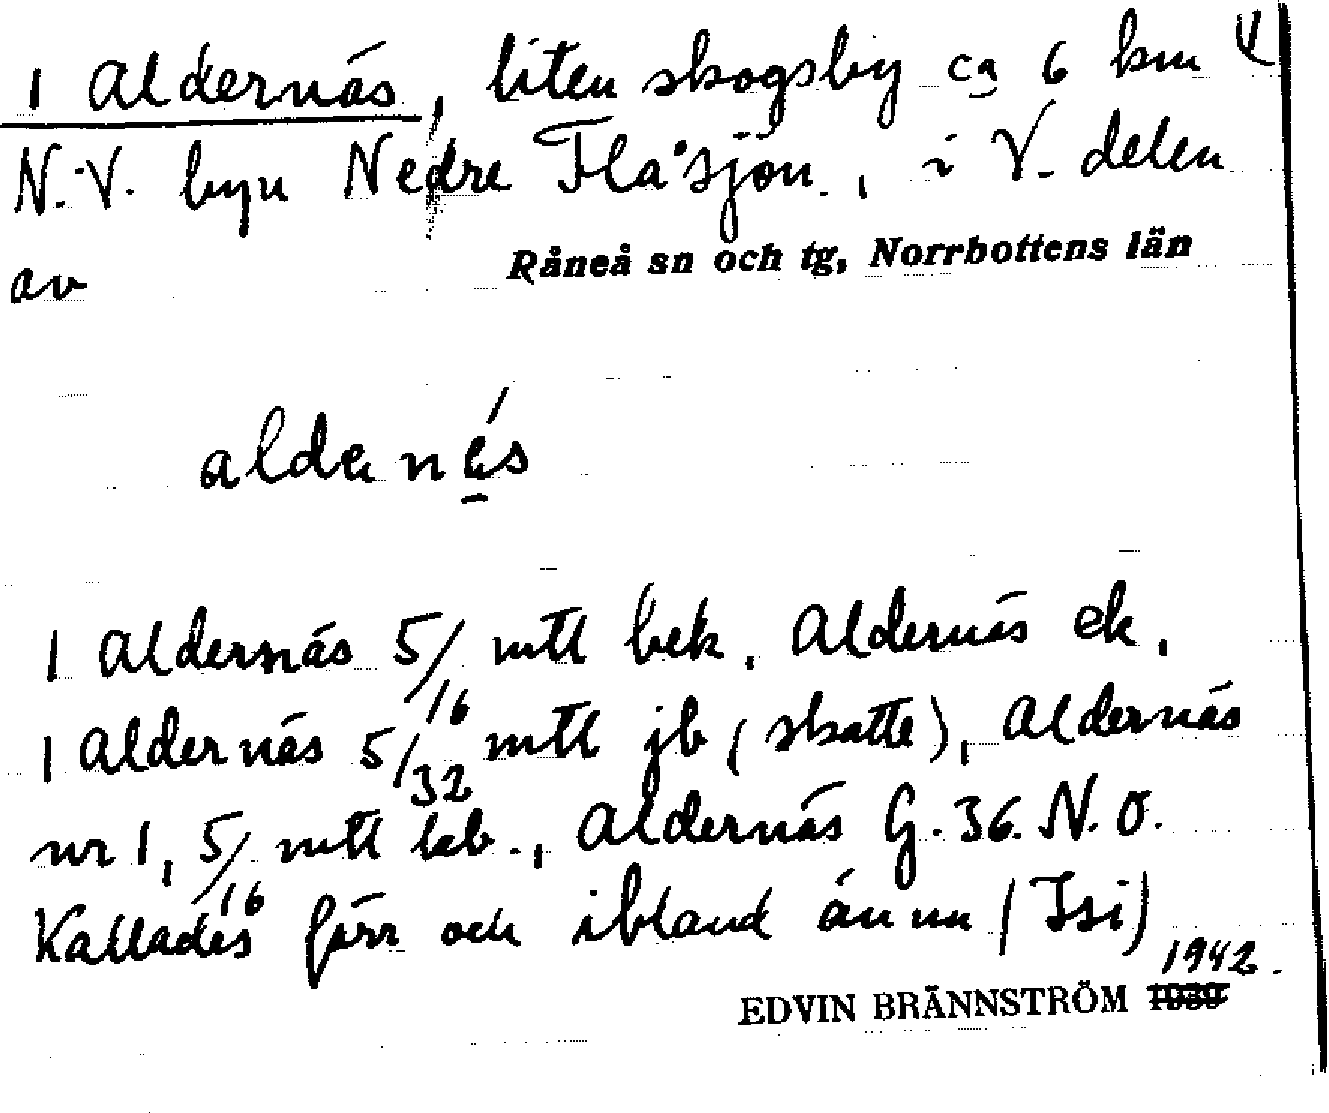 1 Aldernäs, liten skogsby ca 6 km
N.V. byn Nedre Flåsjön, i V. delen
av Råneå sn och tg, Norrbottens län
aldenés
1 Aldernäs 5/16 mtl bek, Aldernäs ek,
1 Aldernäs 5/32 mtl jb (skatte), Aldernäs
nr 1, 5/16 mtl lkb., Aldernäs G. 36. N.O.
Kallades förr och ibland ännu (Isi)
1942.
EDVIN BRÄNNSTRÖM 1939